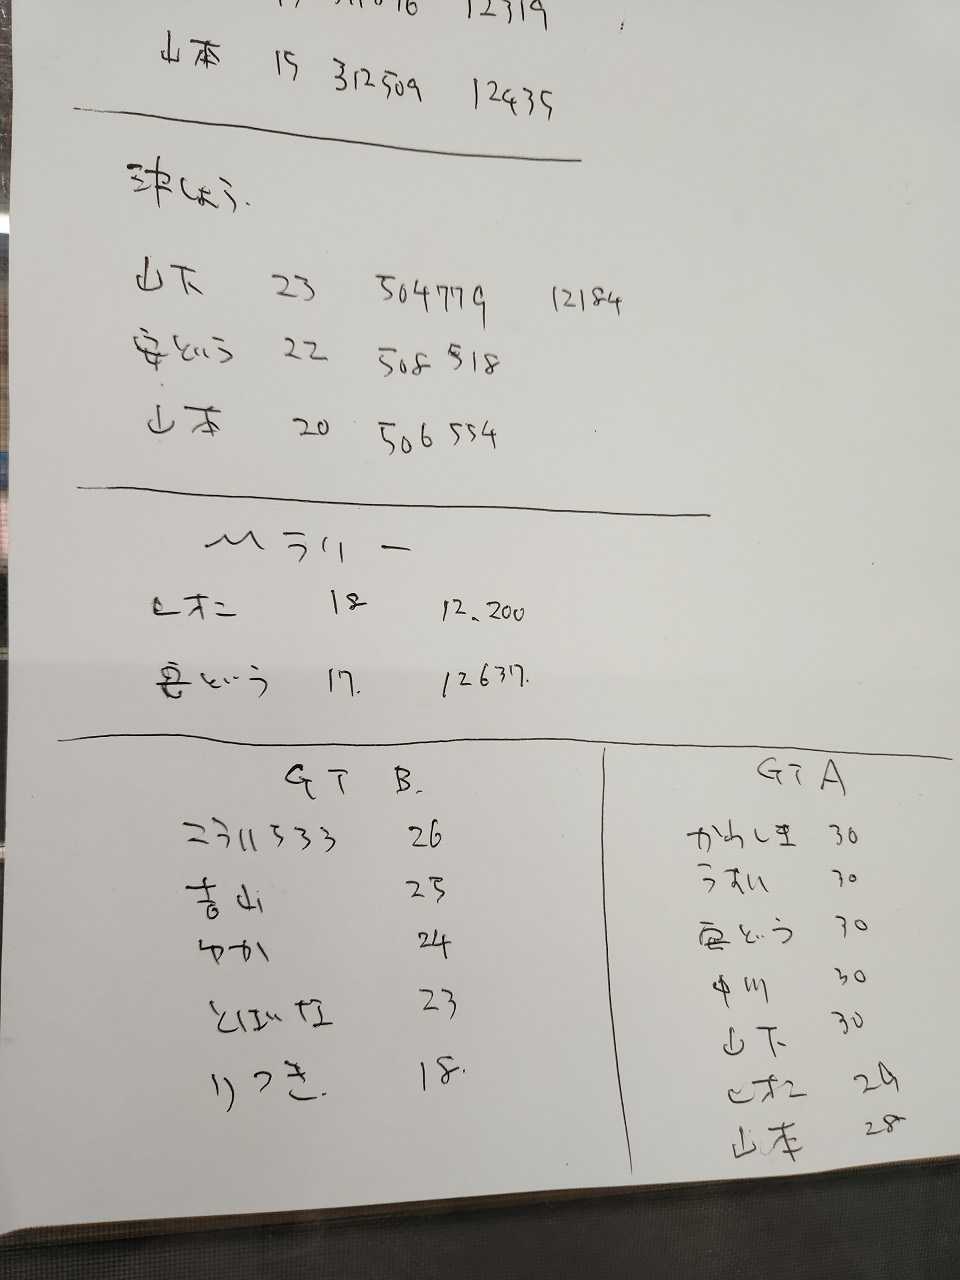 12319
山本 15 312509 12435
しょう.
山下 23 504779 12184
という 22 508 518
山本 20 506 554
Mラリー
ヒオニ 18 12.200
という 17. 12637.
GT B.
26
青山 25
ゆか 24
23
りつき. 18.
GT A
かわしま 30
うすい 30
という 30
中川 30
山下 30
ヒオニ 29
山本 28